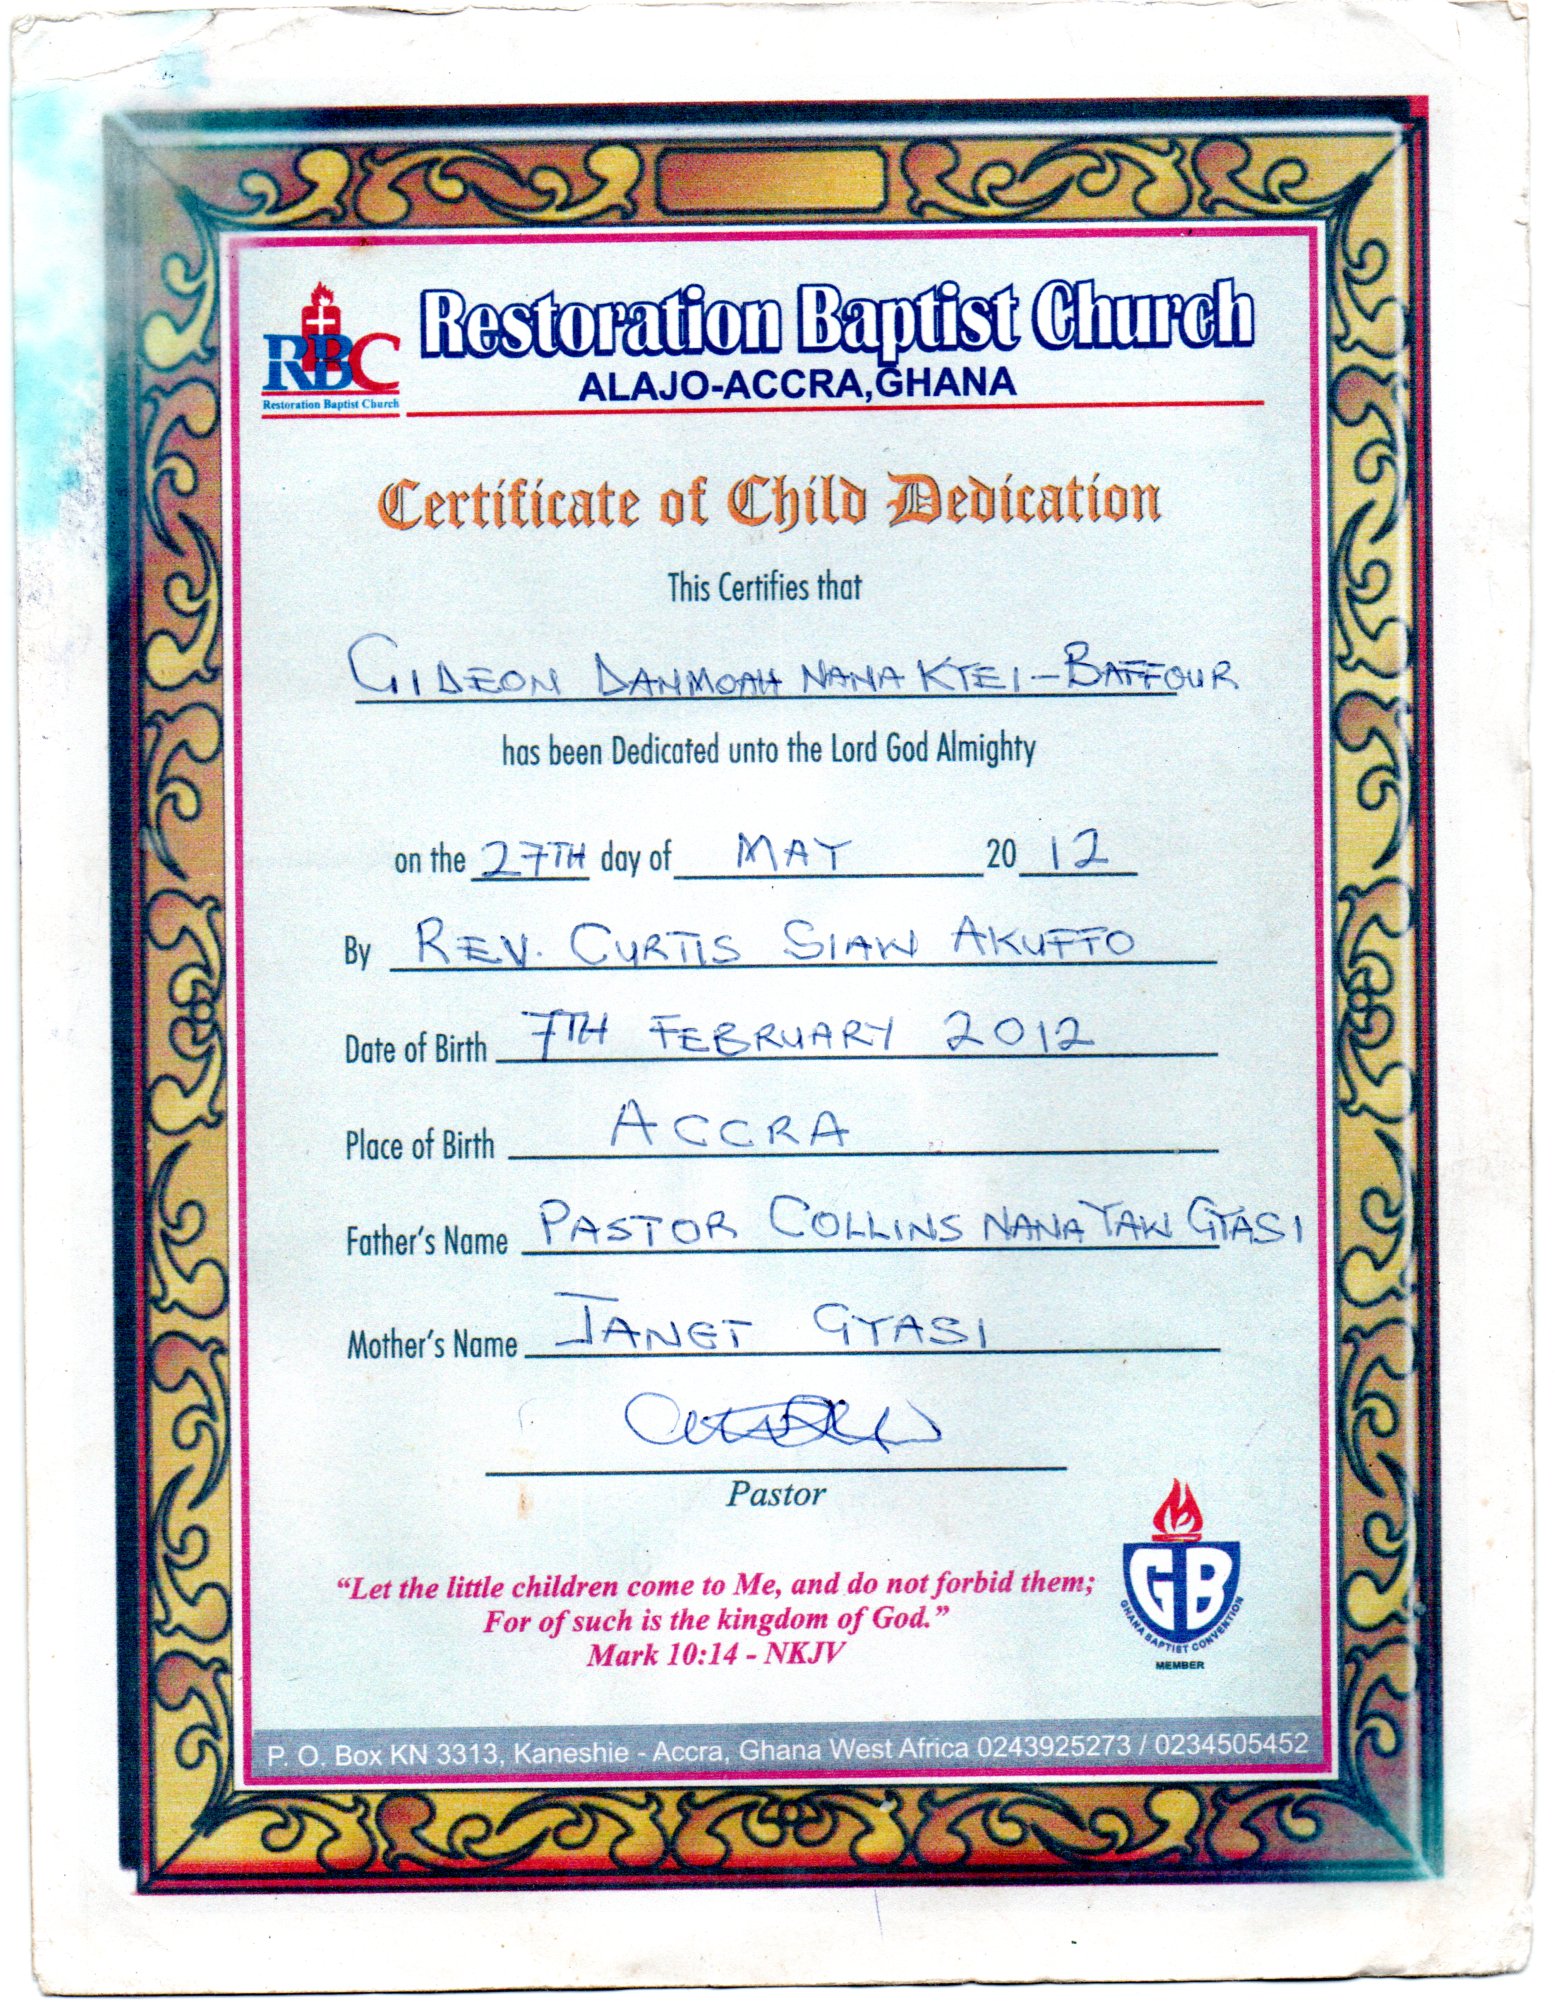 RBC
Restoration Baptist Church
Restoration Baptist Church
ALAJO-ACCRA,GHANA
Certificate of Child Dedication
This Certifies that
GIDEON DANMOAH NANA KYEI-BAFFOUR
has been Dedicated unto the Lord God Almighty
on the 27TH day of MAY 20 12
By REV. CURTIS SIAW AKUFFO
Date of Birth 7TH FEBRUARY 2012
Place of Birth ACCRA
Father's Name PASTOR COLLINS NANA YAW GYASI
Mother's Name JANET GYASI
Pastor
“Let the little children come to Me, and do not forbid them;
For of such is the kingdom of God.”
Mark 10:14 - NKJV
GB
GHANA BAPTIST CONVENTION
MEMBER
P. O. Box KN 3313, Kaneshie - Accra, Ghana West Africa 0243925273 / 0234505452